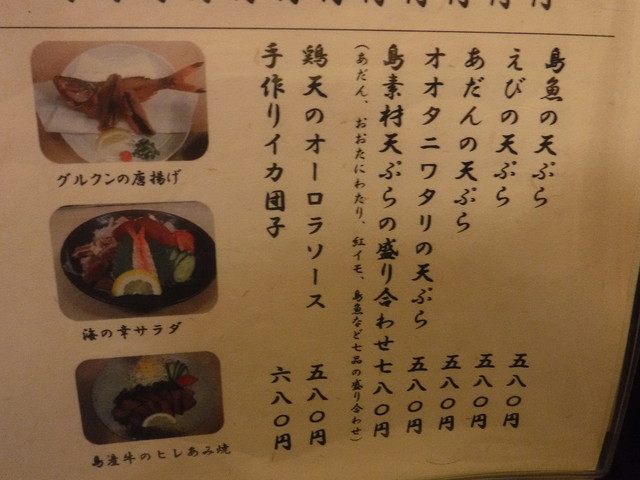 島魚の天ぷら 五八〇円
えびの天ぷら 五八〇円
あだんの天ぷら 五八〇円
オオタニワタリの天ぷら 五八〇円
島素材天ぷらの盛り合わせ 七八〇円
(あだん、おおたにわたり、紅イモ、島魚など七品の盛り合わせ)
鶏天のオーロラソース 五八〇円
手作りイカ団子 六八〇円
グルクンの唐揚げ
海の幸サラダ
島産牛のヒレあみ焼